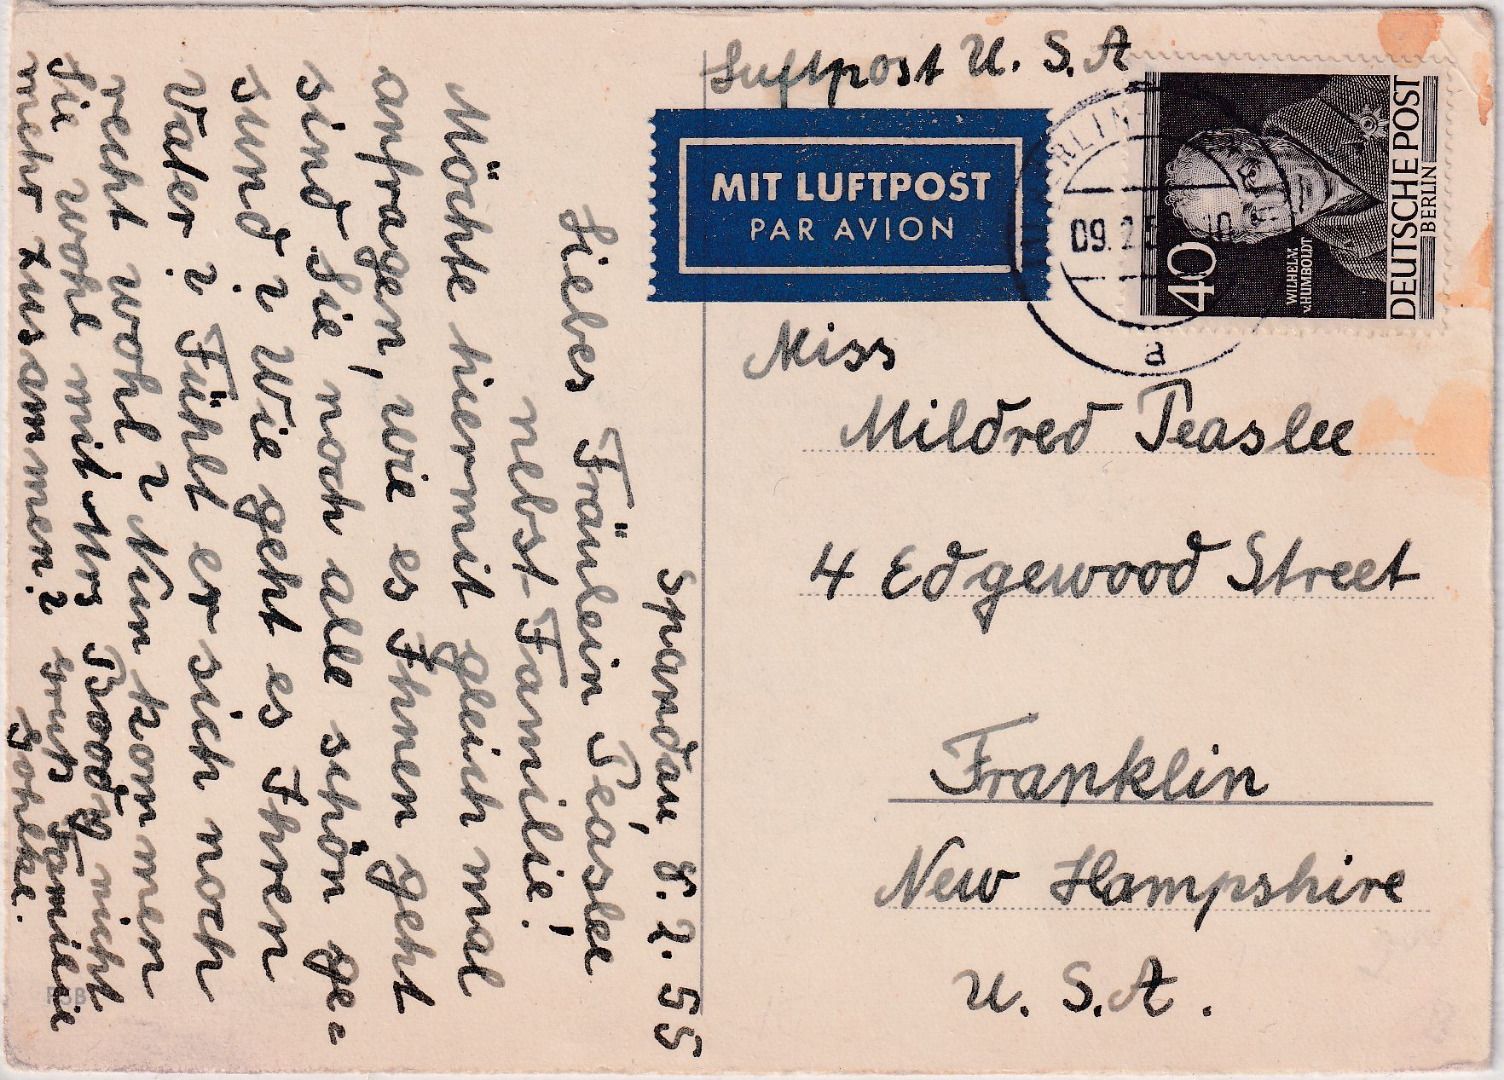 Luftpost U. S. A
MIT LUFTPOST
PAR AVION
BERLIN
09. 2. 5
a
40
WILHELM
v. HUMBOLDT
DEUTSCHE POST
BERLIN
Miss
Mildred Peaslee
4 Edgewood Street
Franklin
New Hampshire
U. S. A.
Spandau, 8. 2. 55
Liebes Fräulein Peaslee
nebst Familie!
Möchte hiermit gleich mal
anfragen, wie es Ihnen geht
sind Sie noch alle schön ge=
sund? Wie geht es Ihren
Vater? Fühlt er sich noch
recht wohl? Nun kommen
Sie wohl mit Mrs Boody nicht
mehr zusammen? Gruß Familie
Gohlke.